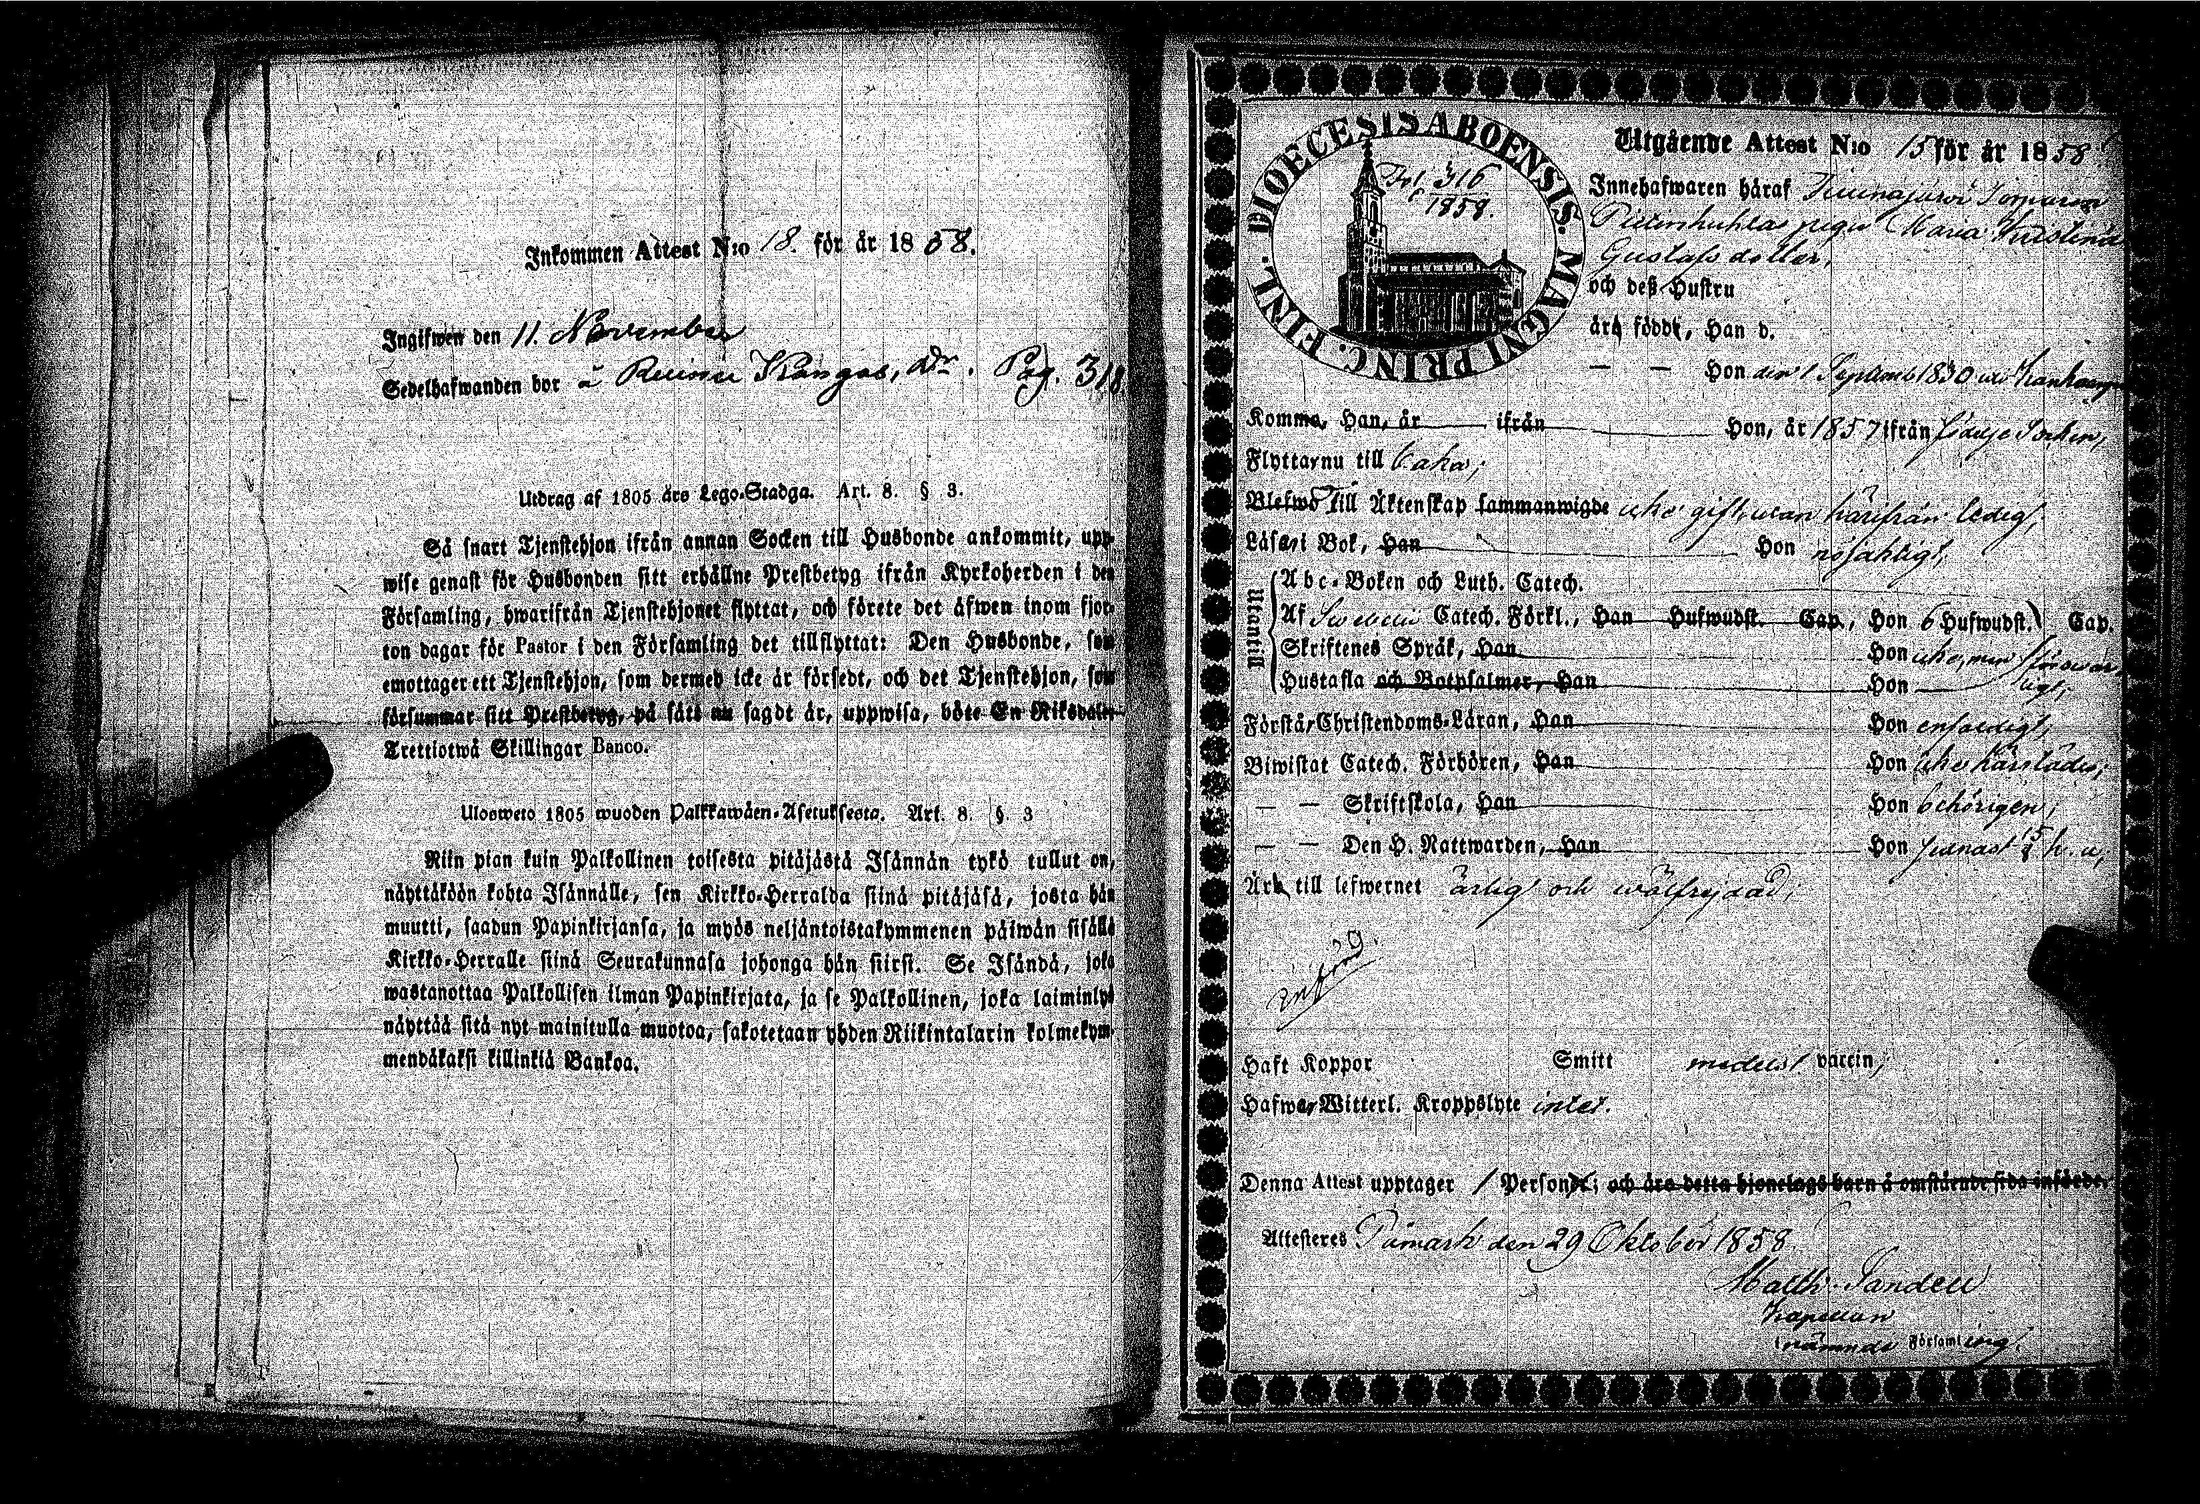 Inkommen Attest N:o 18. för år 1858.
Ingifwen den 11. November
Sedelhafwanden bor å Kangas, Pag. 318.
Utdrag af 1805 års Lego-Stadga. Art. 8. § 3.
Så snart Tjenstehjon ifrån annan Socken till Husbonde ankommit, upp-
wise genast för Husbonden sitt erhållne Prestbetyg ifrån Kyrkoherden i den
Församling, hwarifrån Tjenstehjonet flyttat, och förete det äfwen inom fjor-
ton dagar för Pastor i den Församling det tillflyttat: Den Husbonde, som
emottager ett Tjenstehjon, som dermed icke är försedt, och det Tjenstehjon, som
försummar sitt Prestbetyg, på sätt nu sagdt är, uppwisa, böte En Riksdaler
Trettiotwå Skillingar Banco.
Ulosweto 1805 wuoden Palkkawäen-Asetuksesta. Art. 8. §. 3
Niin pian kuin Palkollinen toisesta pitäjästä Isännän tykö tullut on,
näyttäköön kohta Isännälle, sen Kirkko-Herralda siinä pitäjäsä, josta hän
muutti, saadun Papinkirjansa, ja myös neljäntoistakymmenen päiwän sisällä
Kirkko-Herralle siinä Seurakunnasa johonga hän siirsi. Se Isändä, joka
wastanottaa Palkollisen ilman Papinkirjata, ja se Palkollinen, joka laiminlyö
näyttää sitä nyt mainitulla muotoa, sakotetaan yhden Riikintalarin kolmekym-
mendäkaksi killinkiä Bankoa.
DIOECESIS ABOENSIS. MAGNI PRINC. FINL.
Fol. 316
1858.
Utgående Attest N:o 15 för år 1858
Innehafwaren häraf
pigan Maria Kristina
Gustafsdotter,
och deß Hustru
äro födde, Han d.
— — Hon den 1 Septemb 1830 uti
Komma, Han, år ifrån Hon, år 1857 ifrån
Flyttar nu till
Blefwo Till Äktenskap sammanwigde icke gift, utan härifrån ledig,
Läser i Bok, Han Hon nöjaktigt,
Utantill
Abc-Boken och Luth. Catech.
Af Svebelii Catech. Förkl., Han Hufwudst. Cap., Hon 6 Hufwudst. Cap.
Skriftenes Språk, Han Hon icke, men försvar-
Hustafla och Botpsalmer, Han Hon ligt,
Förstår Christendoms-Läran, Han Hon enfaldigt,
Biwistat Catech. Förhören, Han Hon icke härstädes,
— — Skriftskola, Han Hon behörigen,
— — Den H. Nattwarden, Han Hon senast
Är till lefwernet ärlig och wälfrejdad,
Haft Koppor Smitt medelst vaccin,
Hafwer Witterl. Kroppslyte intet.
Denna Attest upptager 1 Person; och äro detta hjonelags barn å omstående sida införde.
Attesteres Påmark den 29 Oktober 1858
Matth. Sandell
Kapellan
i nämnde Församling.